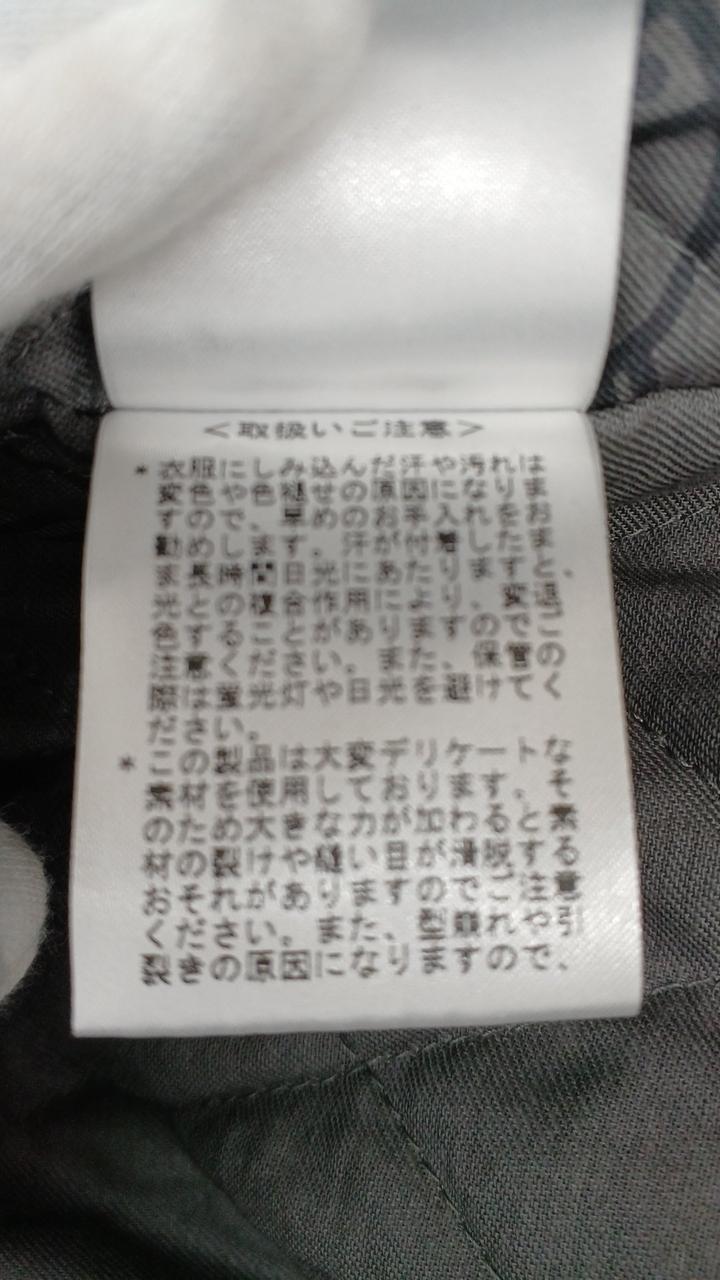 ＜取扱いご注意＞
* 衣服にしみ込んだ汗や汚れは
変色や色褪せの原因になりま
すので、早めのお手入れをお
勧めします。汗が付着したま
ま長時間日光にあたりますと、
光との複合作用により、変退
色することがありますのでご
注意ください。また、保管の
際は蛍光灯や日光を避けてく
ださい。
* この製品は大変デリケートな
素材を使用しております。そ
のため大きな力が加わると素
材の裂けや縫い目が滑脱する
おそれがありますのでご注意
ください。また、型崩れや引
裂きの原因になりますので、